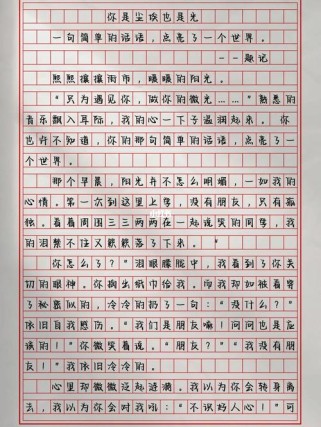 你是尘埃也是光
一句简单的话语，点亮了一个世界。
--题记
熙熙攘攘的闹市，暖暖的阳光。
“只为遇见你，做你的微光……”熟悉的
音乐飘入耳际，我的心一下子温润起来。你
也许不知道，你的那句简单的话语，点亮了一
个世界。
那个早晨，阳光并不怎么明媚，一如我的
心情。第一次到这里上学，没有朋友，只有孤
独。看着周围三三两两在一起说笑的同学，我
的泪禁不住又簌簌落了下来。“
你怎么了？”泪眼朦胧中，我看到了你关
切的眼神。你掏出纸巾给我。而我却如被看穿
了秘密似的，冷冷的扔了一句：“没什么？”
依旧自我感伤。“我们是朋友嘛！问问也是应
该的！”你微笑着说。“朋友？”“我没有朋
友！”我依旧冷冷的。
心里却微微泛起涟漪。我以为你会转身离
去，我以为你会对我吼：“不识好人心！”可